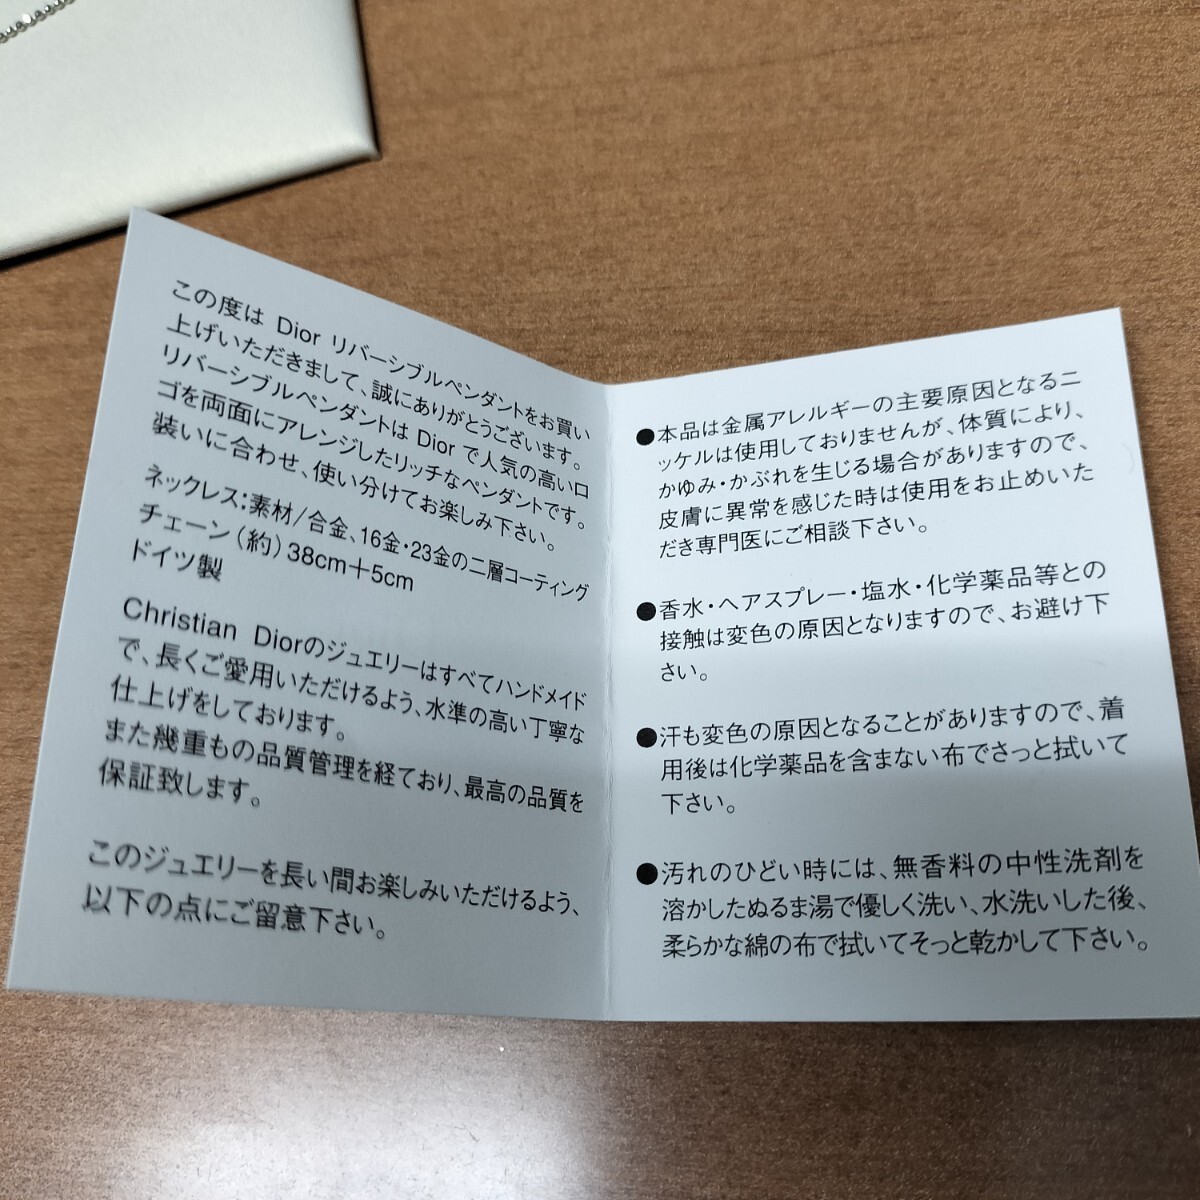 この度は Dior リバーシブルペンダントをお買い
上げいただきまして、誠にありがとうございます。
リバーシブルペンダントは Dior で人気の高いロ
ゴを両面にアレンジしたリッチなペンダントです。
装いに合わせ、使い分けてお楽しみ下さい。
ネックレス:素材/合金、16金・23金の二層コーティング
チェーン(約)38cm+5cm
ドイツ製
Christian Diorのジュエリーはすべてハンドメイド
で、長くご愛用いただけるよう、水準の高い丁寧な
仕上げをしております。
また幾重もの品質管理を経ており、最高の品質を
保証致します。
このジュエリーを長い間お楽しみいただけるよう、
以下の点にご留意下さい。
●本品は金属アレルギーの主要原因となるニ
ッケルは使用しておりませんが、体質により、
かゆみ・かぶれを生じる場合がありますので、
皮膚に異常を感じた時は使用をお止めいた
だき専門医にご相談下さい。
●香水・ヘアスプレー・塩水・化学薬品等との
接触は変色の原因となりますので、お避け下
さい。
●汗も変色の原因となることがありますので、着
用後は化学薬品を含まない布でさっと拭いて
下さい。
●汚れのひどい時には、無香料の中性洗剤を
溶かしたぬるま湯で優しく洗い、水洗いした後、
柔らかな綿の布で拭いてそっと乾かして下さい。